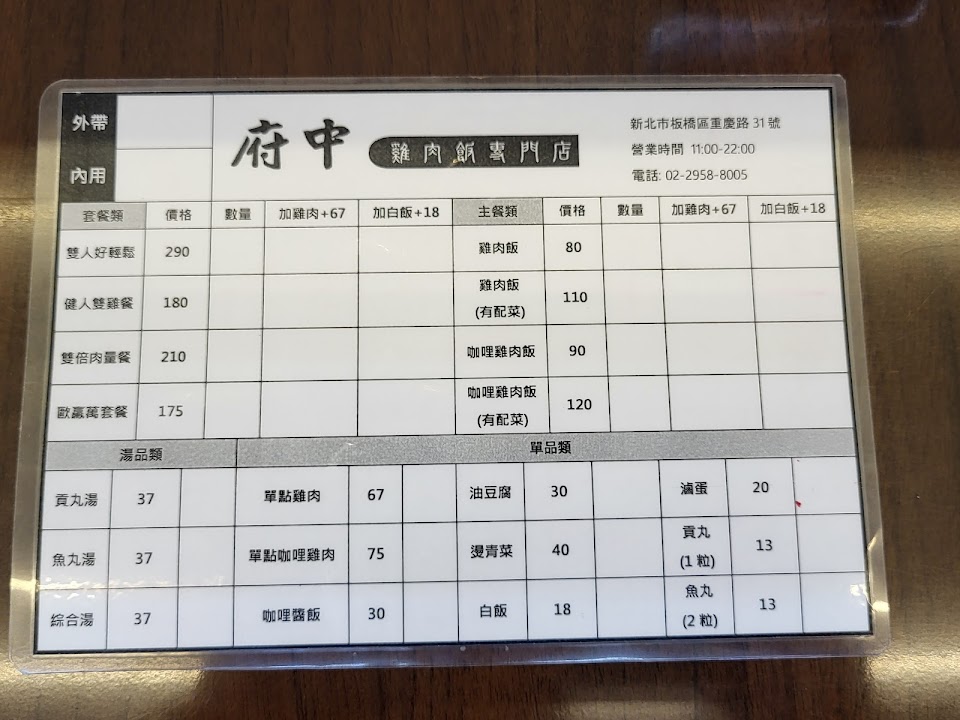 外帶
內用
府中 雞肉飯專門店
新北市板橋區重慶路 31 號
營業時間 11:00-22:00
電話: 02-2958-8005
套餐類 價格 數量 加雞肉+67 加白飯+18 主餐類 價格 數量 加雞肉+67 加白飯+18
雙人好輕鬆 290 雞肉飯 80
健人雙雞餐 180 雞肉飯 (有配菜) 110
雙倍肉量餐 210 咖哩雞肉飯 90
歐贏萬套餐 175 咖哩雞肉飯 (有配菜) 120
湯品類 單品類
貢丸湯 37 單點雞肉 67 油豆腐 30 滷蛋 20
魚丸湯 37 單點咖哩雞肉 75 燙青菜 40 貢丸 (1 粒) 13
綜合湯 37 咖哩醬飯 30 白飯 18 魚丸 (2 粒) 13